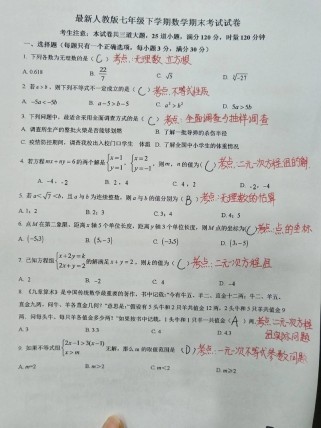 最新人教版七年级下学期数学期末考试试卷
考生注意：本试卷共三道大题，25 道小题，满分 120 分，时量 120 分钟
一、选择题（每题只有一个正确选项，每小题 3 分，满分 30 分）
1. 下列各数为无理数的是（C）考点：无理数 立方根
A. 0.618 B. 22/7 C. √5 D. ∛-27
2. 若a>b，则下列不等式不一定成立的是（C）考点：不等式性质
A. -5a<-5b B. a-5>b-5 C. a²>b² D. 5a>5b
3. 下列问题中，最适合采用全面调查方式的是（C）考点：全面调查与抽样调查
A. 调查所生产的整批火柴是否能够划燃 B. 了解一批导弹的杀伤半径
C. 疫情防控期间，调查我校出入校门口学生体温 D. 了解全国中小学生的体重情况
4. 若方程 mx+ny=6 的两个解是 {x=1 y=1, {x=2 y=-1, 则 m，n 的值为（C）考点：二元一次方程组的解
A. -4，-2 B. 2，4 C. 4，2 D. -2，-4
5. 若 a<√7<b，且 a 与 b 为连续整数，则 a 与 b 的值分别为（B）考点：无理数的估算
A. 1；2 B. 2；3 C. 3；4 D. 4；5
6. 点 M 在第二象限，距离 x 轴 5 个单位长度，距离 y 轴 3 个单位长度，则 M 点的坐标为（C）考点：点的坐标
A. (-5,3) B. (5,-3) C. (-3,5) D. (3,-5)
7. 已知方程组 {x+2y=k 2x+y=2 的解满足 x+y=2，则 k 的值为（C）考点：二元一次方程组
A. 2 B. -2 C. 4 D. -4
8. 《九章算术》是中国传统数学最重要的著作，书中记载：“今有牛五、羊二，直金十二两；牛二、羊五，
直金九两，问牛、羊各直金几何？”意思是：“假设有 5 头牛和 2 只羊共值金 12 两，2 头牛和 5 只羊共值金 9
两，问每头牛、每只羊各值金多少两？”如果按书中记载，1 头牛和 1 只羊一共值金（A）两．考点：二元一次方程
组实际问题
A. 3 B. 3.3 C. 4 D. 4.3
9. 如果不等式组 {2x-1>3(x-1) x>m 无解，那么 m 的取值范围是（D）考点：一元一次不等式参数问题
A. m=2 B. m>2 C. m<2 D. m≥2